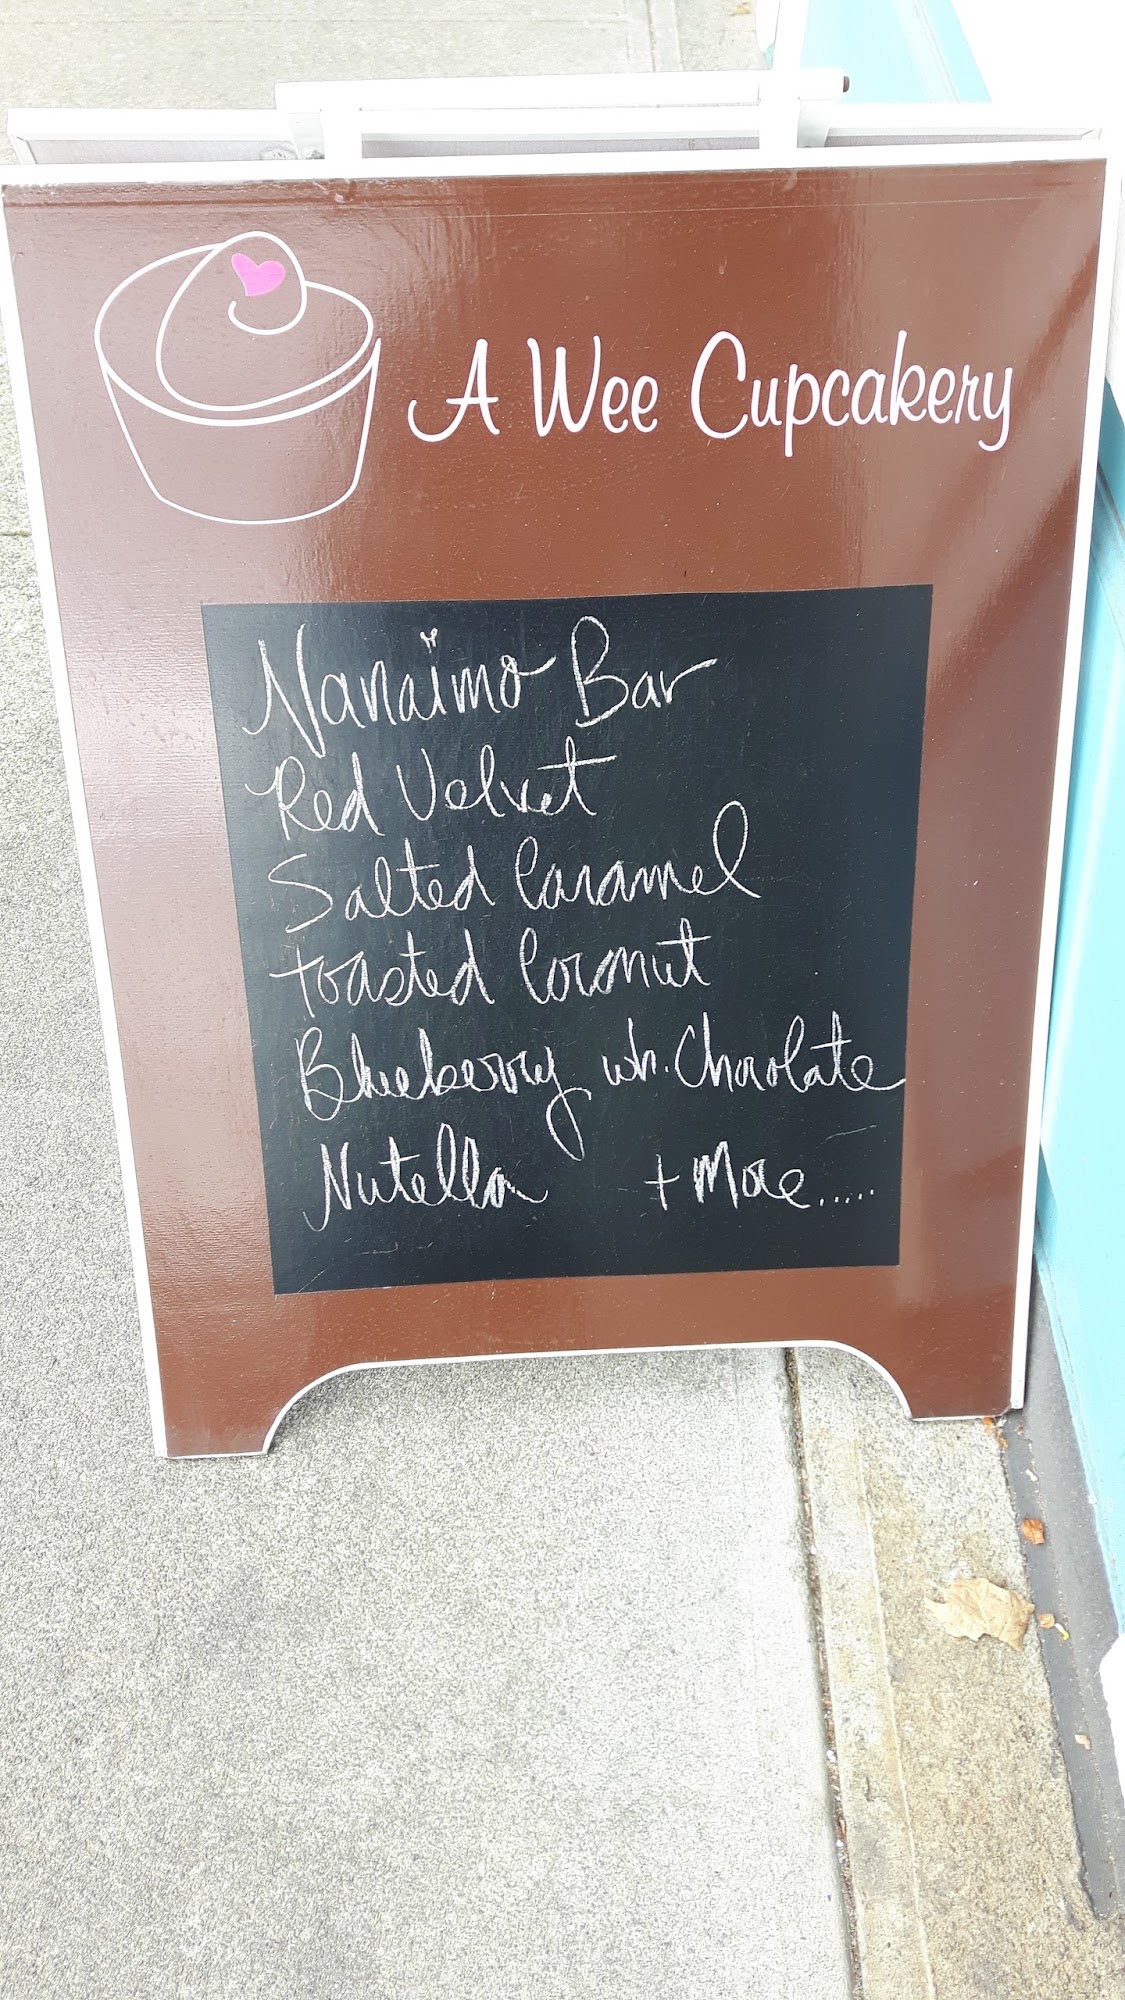 A Wee Cupcakery
Nanaimo Bar
Red Velvet
Salted Caramel
Toasted Coconut
Blueberry wh. Chocolate
Nutella + More.....